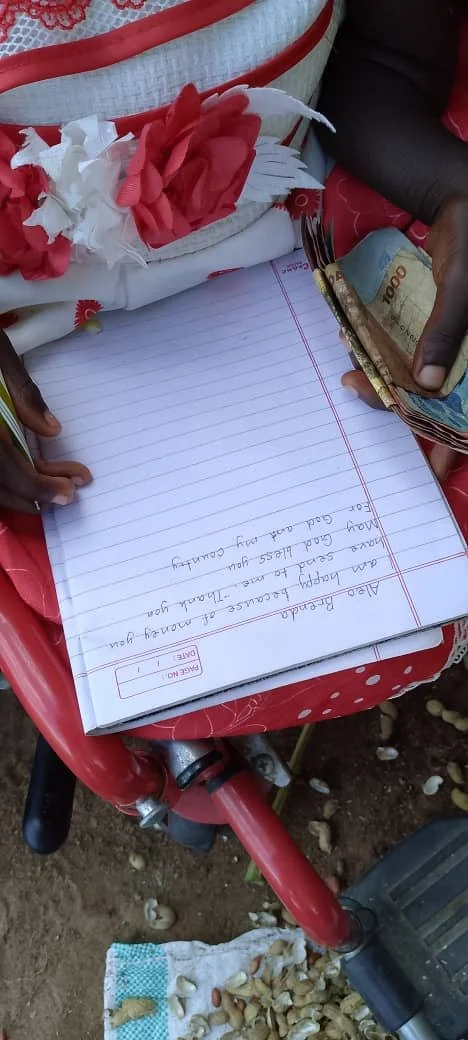 PAGE NO.:
DATE: / /
Aleo Brenda
am happy because of money you
have send to me. Thank you
May God bless you
For God and my country
1000